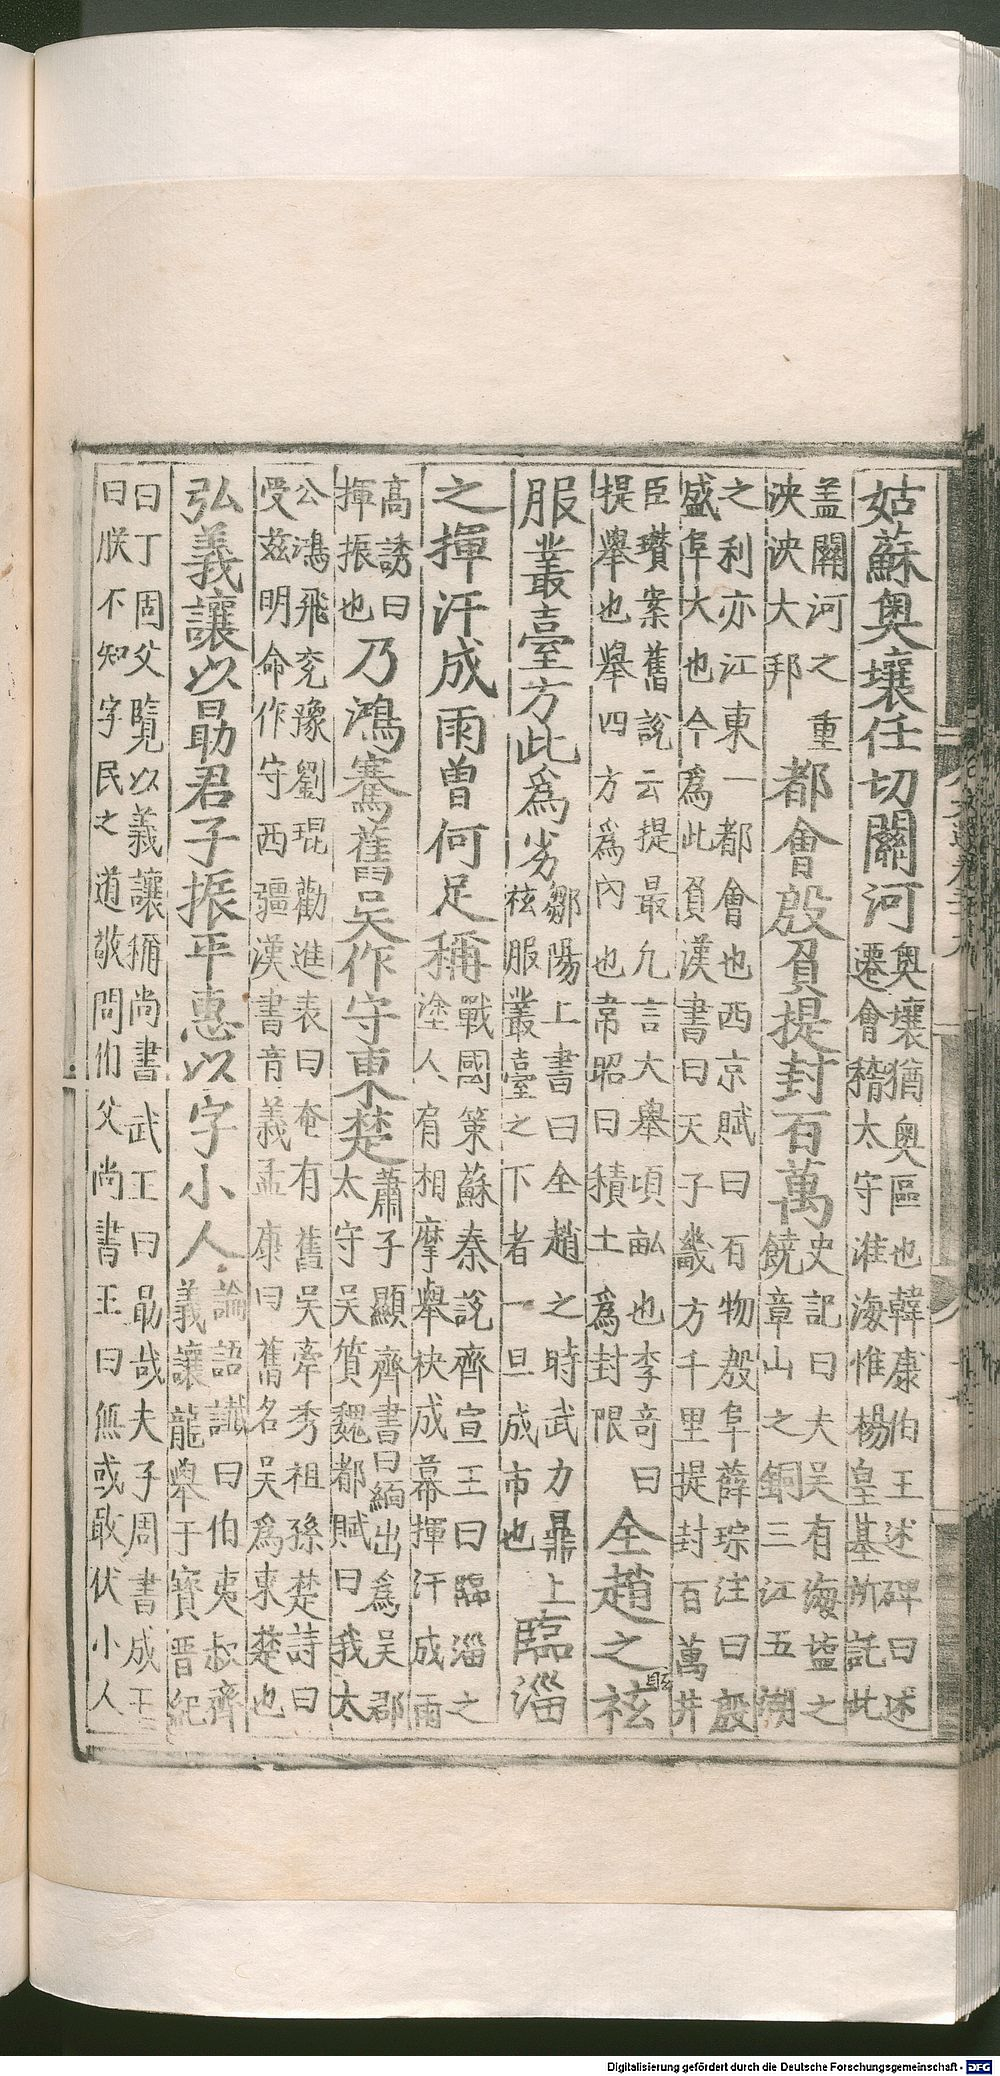 姑蘇奧壤任切關河奧壤猶奧區也韓康伯王述碑曰述遷會稽太守淮海惟楊皇基所託此
盖關河之重泱泱大邦都會殷負提封百萬史記曰夫吳有海鹽之饒章山之銅三江五湖
之利亦江東一都會也西京賦曰百物殷阜薛琮注曰殷盛阜大也今爲此負漢書曰天子畿方千里提封百萬井
臣瓚案舊說云提最凡言大舉頃畝也李竒曰提舉也舉四方爲內也韋昭曰積土爲封限全趙之袨
服叢臺方此爲劣鄒陽上書曰全趙之時武力鼎上袨服叢臺之下者一旦成市也臨淄
之揮汗成雨曾何足稱戰國策蘇秦說齊宣王曰臨淄之塗人肩相摩舉袂成幕揮汗成雨
高誘曰揮振也乃鴻騫舊吳作守東楚蕭子顯齊書曰緬出爲吳郡太守吳質魏都賦曰我太
公鴻飛兖豫劉琨勸進表曰奄有舊吳牽秀祖孫楚詩曰受茲明命作守西疆漢書音義孟康曰舊名吳爲東楚也
弘義讓以勗君子振平惠以字小人論語讖曰伯夷叔齊義讓龍舉于寶晋紀
曰丁固父覽以義讓稱尚書武王曰勗哉夫子周書成王曰朕不知字民之道敬問伯父尚書王曰無或敢伏小人
Digitalisierung gefördert durch die Deutsche Forschungsgemeinschaft - DFG